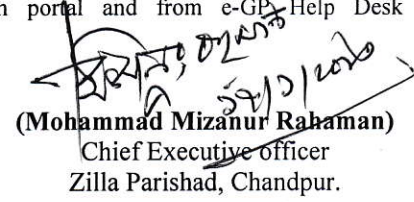 portal and from e-GP Help Desk
(Mohammad Mizanur Rahaman)
Chief Executive officer
Zilla Parishad, Chandpur.